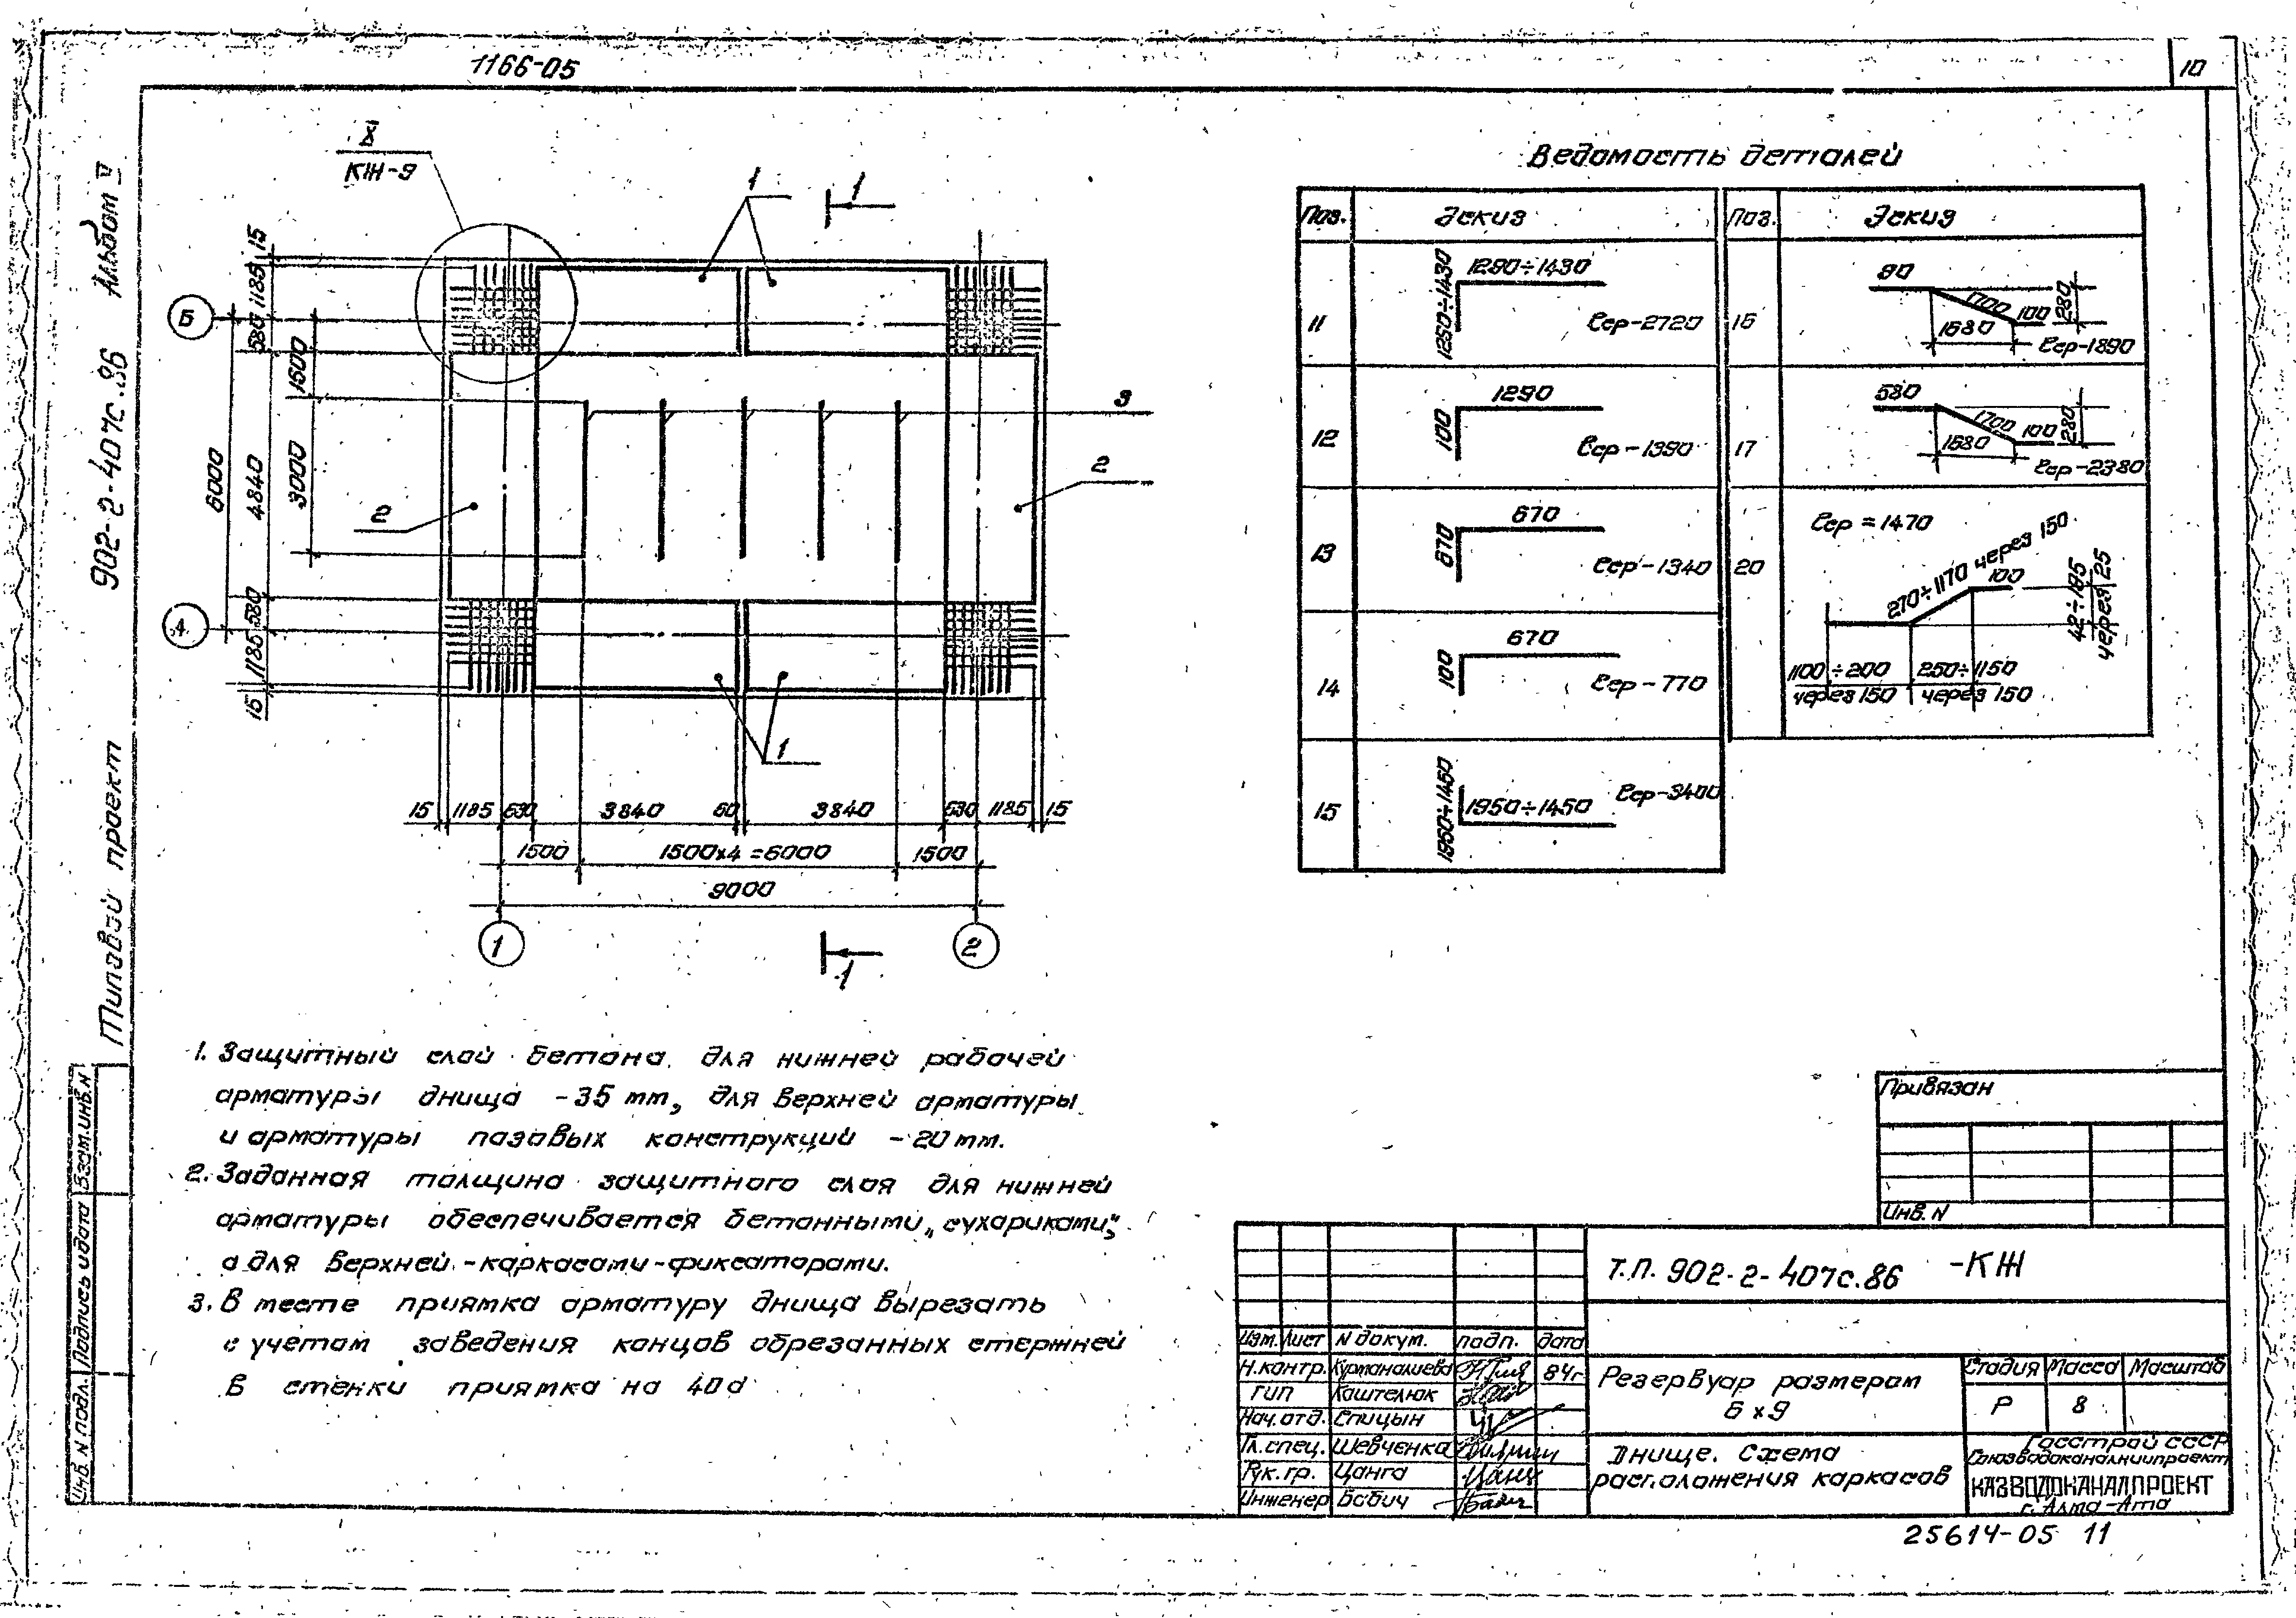 1166-05
10
Альбом V
902-2-407с.86
Типовой проект
X
КЖ-9
1
1
15
1185
580
Б
1500
3
6000
4840
3000
2
2
580
А
1185
15
1
15 1185 630 3840 60 3840 630 1185 15
1500 1500х4=6000 1500
9000
1 2
1
Ведомость деталей
Поз. Эскиз Поз. Эскиз
11 1290÷1430 1250÷1430 ℓср-2720
12 1290 100 ℓср-1390
13 670 670 ℓср-1340
14 670 100 ℓср-770
15 1950÷1450 1950÷1450 ℓср-3400
16 90 1700 100 280 1680 ℓср-1890
17 580 1700 100 280 1680 ℓср-2380
20 ℓср=1470
270÷1170 через 150
100
42÷185 через 25
1100÷200 250÷1150
через 150 через 150
1. Защитный слой бетона для нижней рабочей
арматуры днища -35 мм, для верхней арматуры
и арматуры пазовых конструкций -20 мм.
2. Заданная толщина защитного слоя для нижней
арматуры обеспечивается бетонными „сухариками“,
а для верхней -каркасами-фиксаторами.
3. В месте приямка арматуру днища вырезать
с учетом заведения концов обрезанных стержней
в стенки приямка на 40d
Привязан
Инв. N
Т.П. 902-2-407с.86 -КЖ
Изм. Лист N докум. подп. дата
Н.контр. Курманалиева 84г
ГИП Каштелюк
Нач.отд. Спицын
Гл.спец. Шевченко
Рук.гр. Цанга
Инженер Бабич
Резервуар размером
6х9
Стадия Масса Масштаб
Р 8
Днище. Схема
расположения каркасов
Госстрой СССР
Союзводоканалниипроект
КАЗВОДОКАНАЛПРОЕКТ
г. Алма-Ата
25614-05 11
Взам.инв.N
Подпись и дата
Инв. N подл.